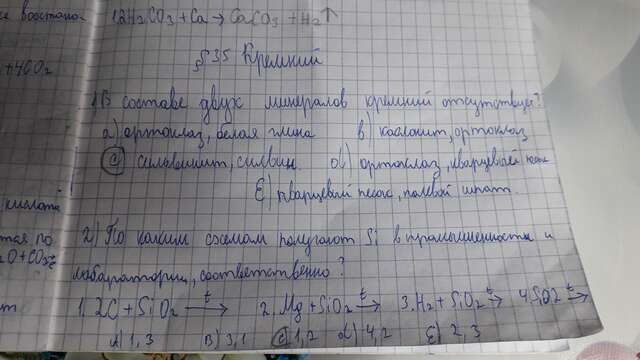 12H₂CO₃ + Ca → CaCO₃ + H₂↑
§ 35 Кремний
+4CO₂
1) В составе двух минералов кремний отсутствует?
a) ортоклаз, белая глина b) каолинит, ортоклаз
c) сильвинит, сильвин d) ортоклаз, кварцевый
E) кварцевый песок, полевой шпат.
кислота
2) По каким схемам получают Si в промышленности и
лаборатории, соответственно?
O + CO₂
1. 2C + SiO₂ →t 2. Mg + SiO₂ →t 3. H₂ + SiO₂ →t 4. SiO2 →t
A) 1, 3 B) 3, 1 C) 1, 2 d) 4, 2 E) 2, 3